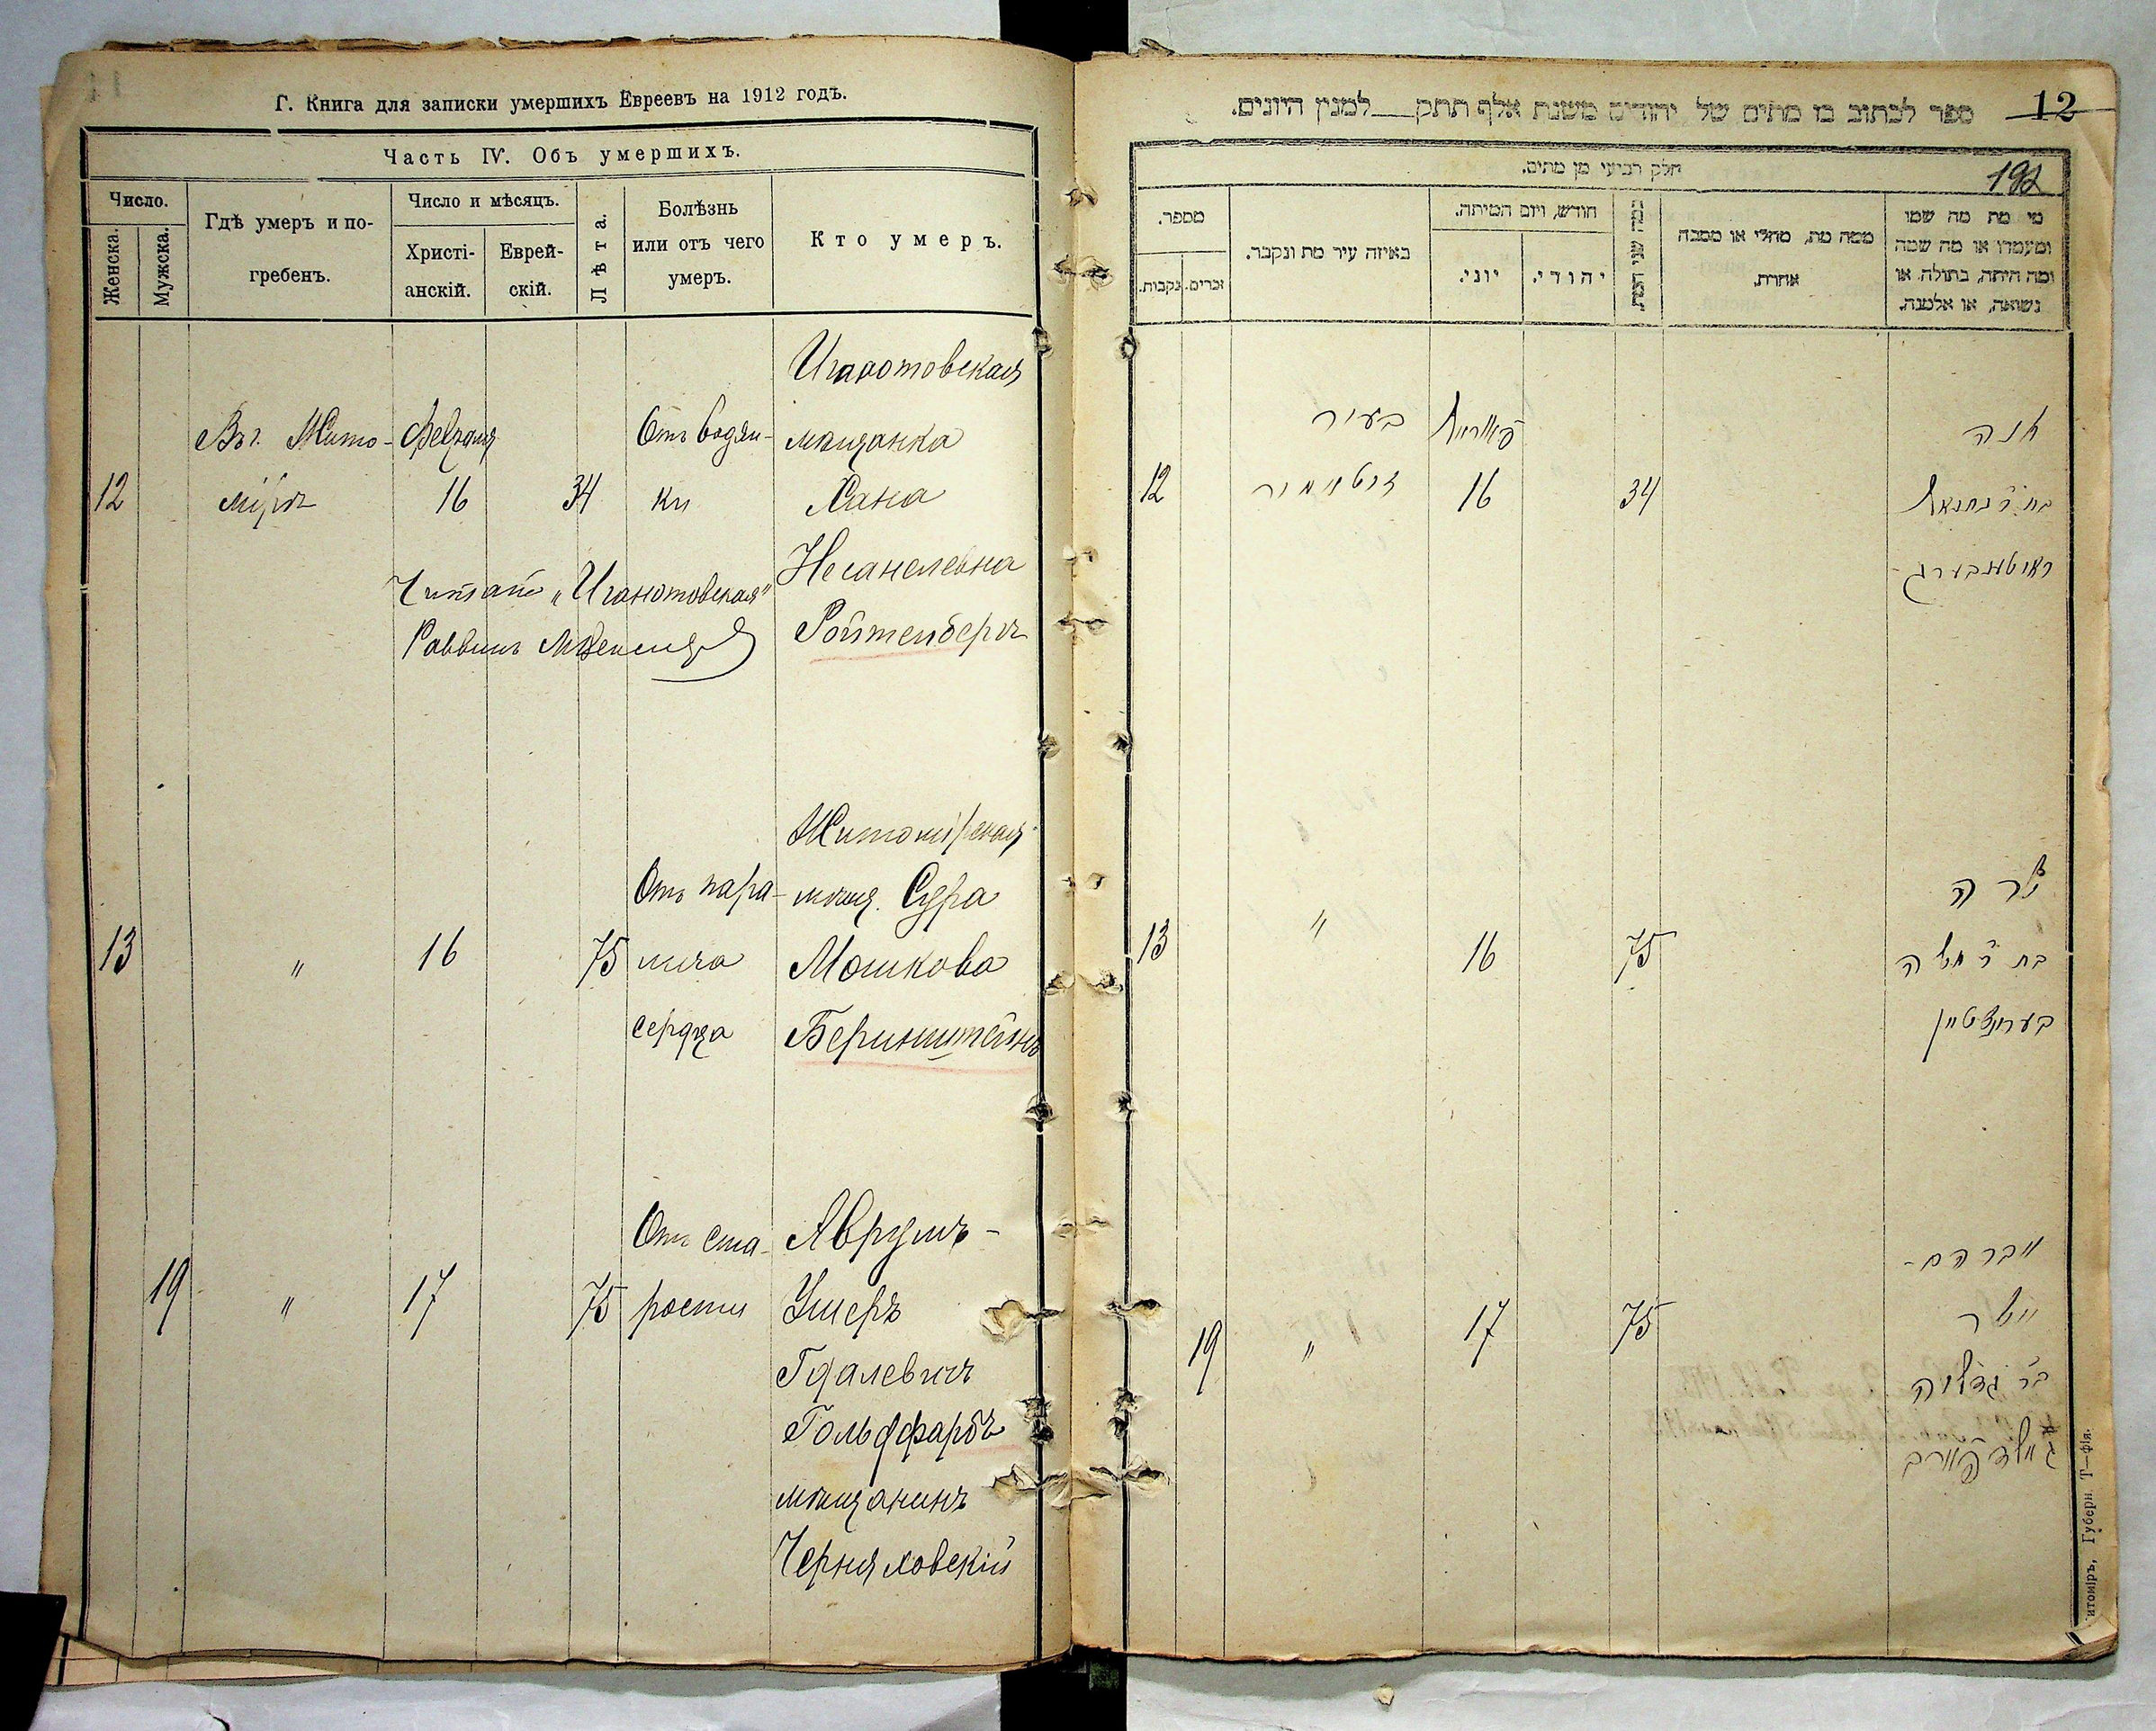 Г. Книга для записки умершихъ Евреевъ на 1912 годъ.
Часть IV. Объ умершихъ.
Число.
Женска.
Мужска.
Гдѣ умеръ и по-
гребенъ.
Число и мѣсяцъ.
Христі-
анскій.
Еврей-
скій.
Лѣта.
Болѣзнь
или отъ чего
умеръ.
Кто умеръ.
12
Въ г. Жито-
мірѣ
Февраля
16
34
Отъ водян-
ки
мѣщанка
Хана
Несанелевна
Ройтенбергъ
Читать „Игнатовская"
Раввинъ
13
"
16
75
Отъ пара-
лича
сердца
Житомірская
мѣщ. Сура
Мошкова
Беринштейнъ
19
"
17
75
Отъ ста-
рости
Аврумъ-
Ушеръ
Гдалевичъ
Гольдфарбъ
мѣщанинъ
Черняховскій
12
192
ספר לכתוב בו מתים של יהודים משנת אלף תתק למנין היונים.
חלק רביעי מן מתים.
מספר.
נקבות.
זכרים.
באיזה עיר מת ונקבר.
חודש, ויום המיתה.
יוני.
יהודי.
כמה שני המת.
ממה מת, מחלי או מסבה
אחרת.
מי מת מה שמו
ומעמדו או מה שמה
ומה היתה, בתולה או
נשואה, או אלמנה.
12
בעיר
זיטאמיר
16
34
חנה
בת ר' נתנאל
ראיטענבערג
13
"
16
75
שרה
בת ר' משה
בערינשטיין
19
"
17
75
אברהם-
אשר
ב"ר גדליה
גאלדפארב
итоміръ, Губерн. Т—фія.